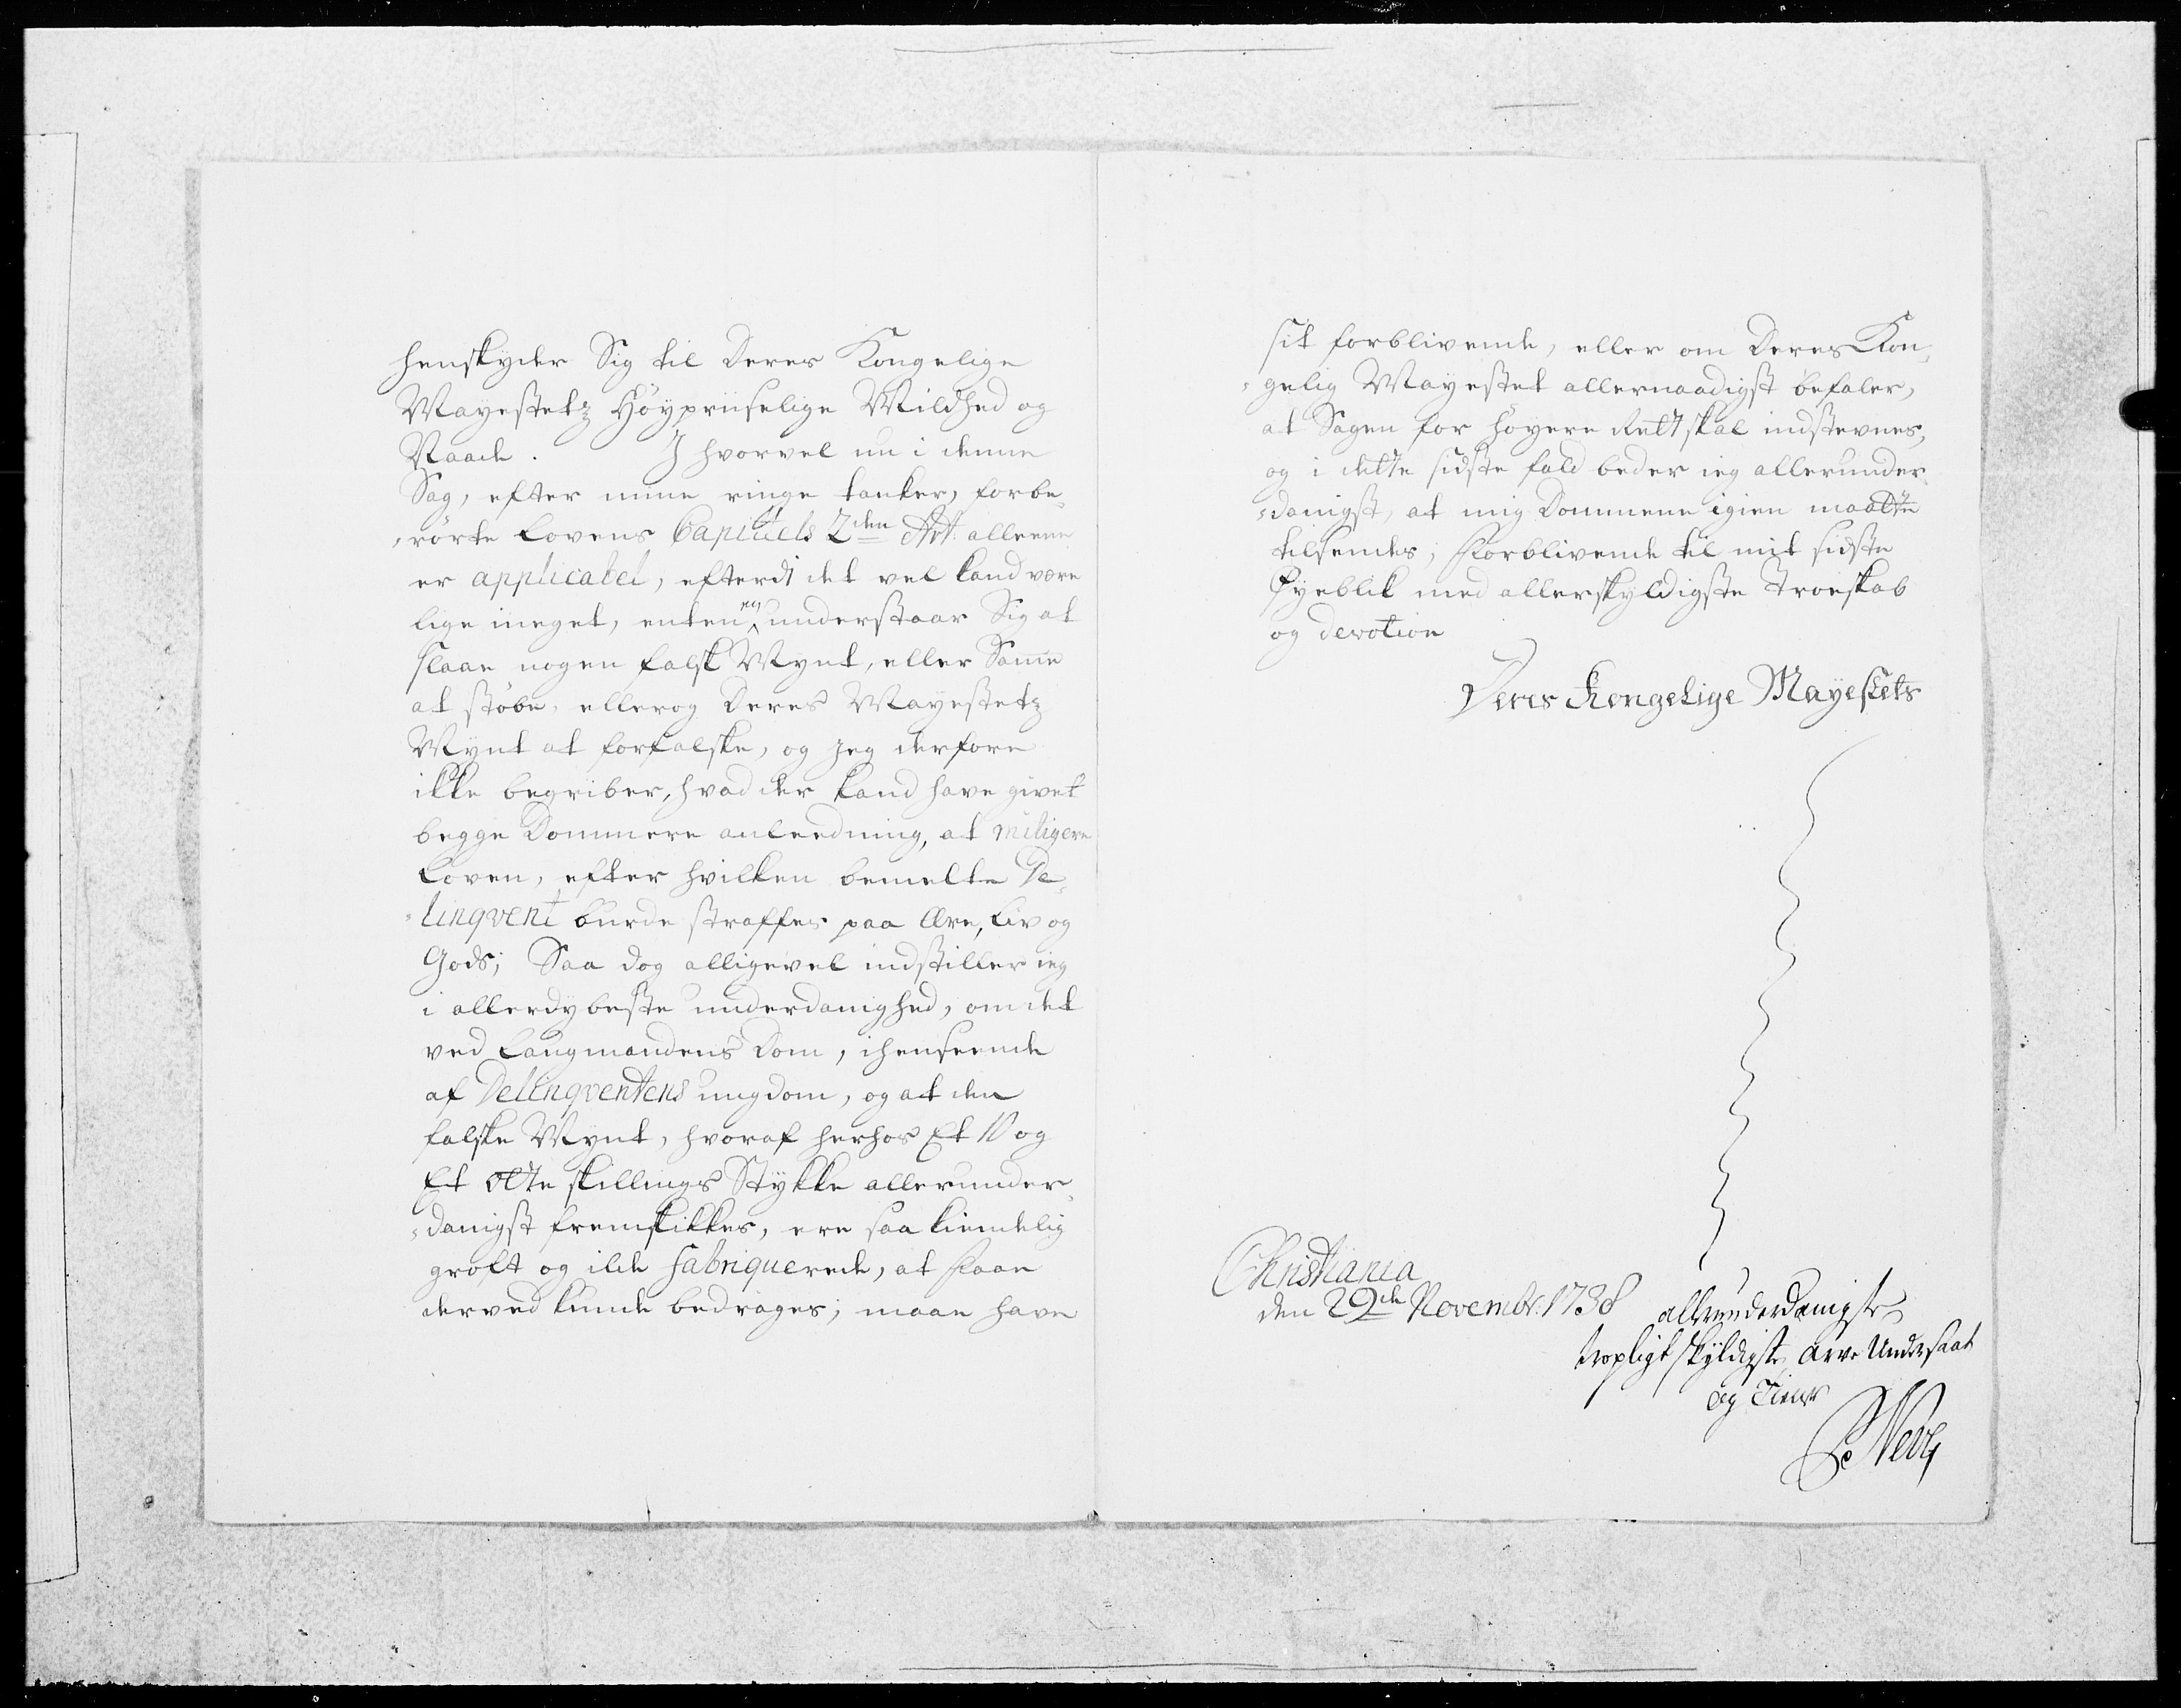 henskyder Sig til Deres Kongelige
Mayestetz Höypriiselige Mildhed og
Naade. I hvorvel nu i denne
Sag, efter mine ringe tanker, forbe¸
¸rörte Lovens Capituls 2den Art: alleene
er applicabel, efterdi det vel kand være
lige meget, enten mand understaar Sig at
slaae nogen falsk Mynt, eller Samme
at stöbe, eller og Deres Mayestetz
Mynt at forfalske, og jeg derfore
ikke begriber, hvad der kand have givet
begge Dommere anleedning, at mitigere
Loven, efter hvilken bemelte De¸
¸linqvent burde straffes paa Ære, Liv og
Gods; Saa dog alligevel indstiller ieg
i allerdybeste underdanighed, om det
ved Laugmandens Dom, i henseende
af Delinqventens ungdom, og at den
falske Mynt, hvoraf herhos Et 10 og
Et Otte skillings Stykke allerunder¸
¸danigst fremskikkes, ere saa kiendelig
groft og ilde fabriquerede, at faae
derved kunde bedrages; maae have
sit forblivende, eller om Deres Kon¸
¸gelig Mayestet allernaadigst befaler,
at Sagen for höyere Rett skal indstevnes,
og i dette sidste fald beder ieg allerunder¸
¸danigst, at mig Dommene igien maatte
tilsendes; Forblivende til mit sidste
Øyeblik med allerskyldigste Troeskab
og devotion
Deres Kongelige Mayestets
Christiania
den 29de Novembr: 1738 allerunderdanigste
troepligt skyldigste Arve Undersaat
og Tiener